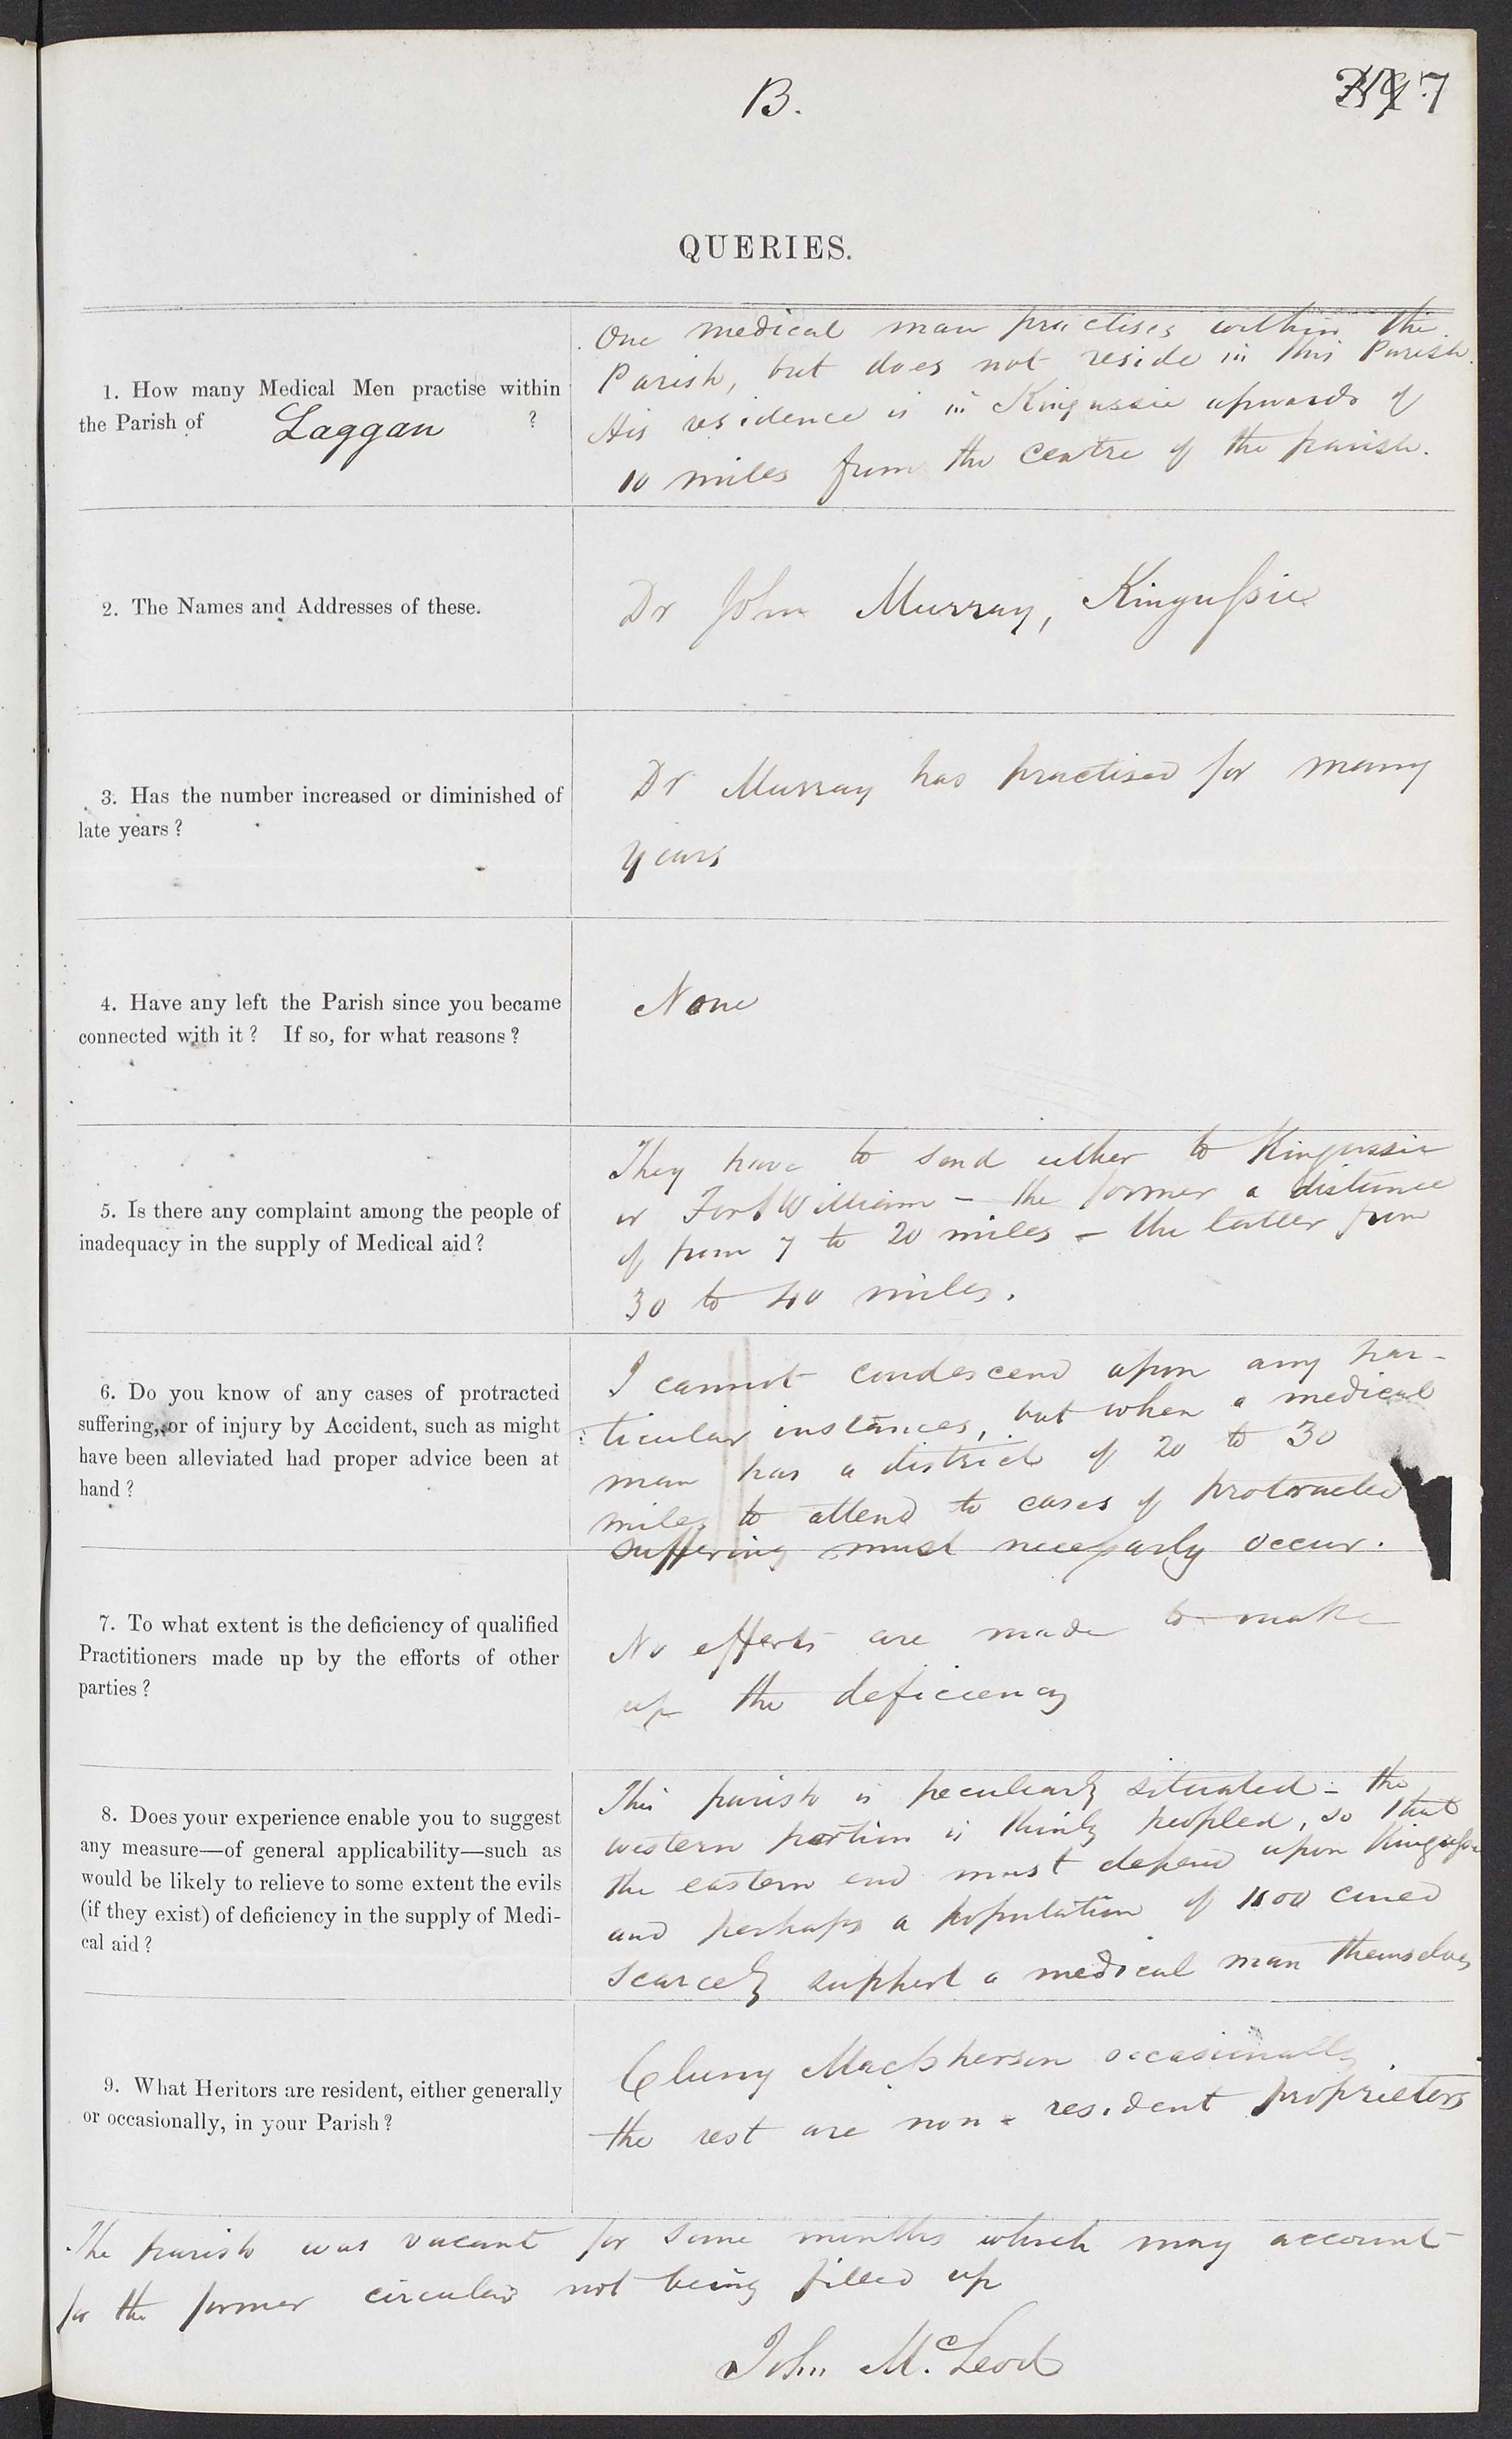 B.
7
QUERIES.
1. How many Medical Men practise within
the Parish of Laggan ?
One medical man practises within the
Parish, but does not reside in this Parish.
His residence is in Kingussie upwards of
10 miles from the centre of the parish.
2. The Names and Addresses of these.
Dr John Murray, Kingussie
3. Has the number increased or diminished of
late years?
Dr Murray has practised for many
years
4. Have any left the Parish since you became
connected with it? If so, for what reasons?
None
5. Is there any complaint among the people of
inadequacy in the supply of Medical aid?
They have to send either to Kingussie
or Fort William - the former a distance
of from 7 to 20 miles - the latter from
30 to 40 miles.
6. Do you know of any cases of protracted
suffering, or of injury by Accident, such as might
have been alleviated had proper advice been at
hand?
I cannot condescend upon any par-
ticular instances, but when a medical
man has a district of 20 to 30
miles to attend to cases of protracted
suffering must necessarly occur.
7. To what extent is the deficiency of qualified
Practitioners made up by the efforts of other
parties?
No efforts are made to make
up the deficiency
8. Does your experience enable you to suggest
any measure—of general applicability—such as
would be likely to relieve to some extent the evils
(if they exist) of deficiency in the supply of Medi-
cal aid?
This parish is peculiarly situated - the
western portion is thinly peopled, so that
the eastern end must depend upon Kingussie
and perhaps a population of cined
scarcely support a medical man themselves
9. What Heritors are resident, either generally
or occasionally, in your Parish?
Cluny Macpherson occasionally
the rest are non-resident proprietors
The parish was vacant for some months which may account
for the former circular not being filled up
John McLeod